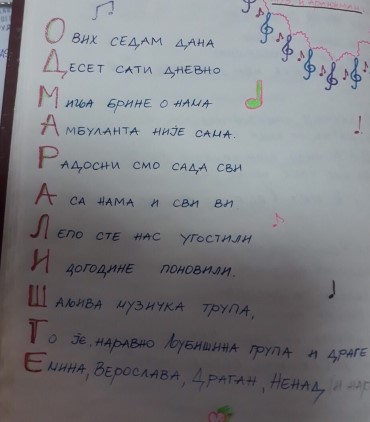 Ових седам дана
Десет сати дневно
Мића брине о нама
Амбуланта није сама.
Радосни смо сада сви
А са нама и сви ви
Лепо сте нас угостили
И догодине поновили.
Шаљива музичка трупа,
То је, наравно Љубишина група и драге
Емина, Верослава, Драган, Ненад и